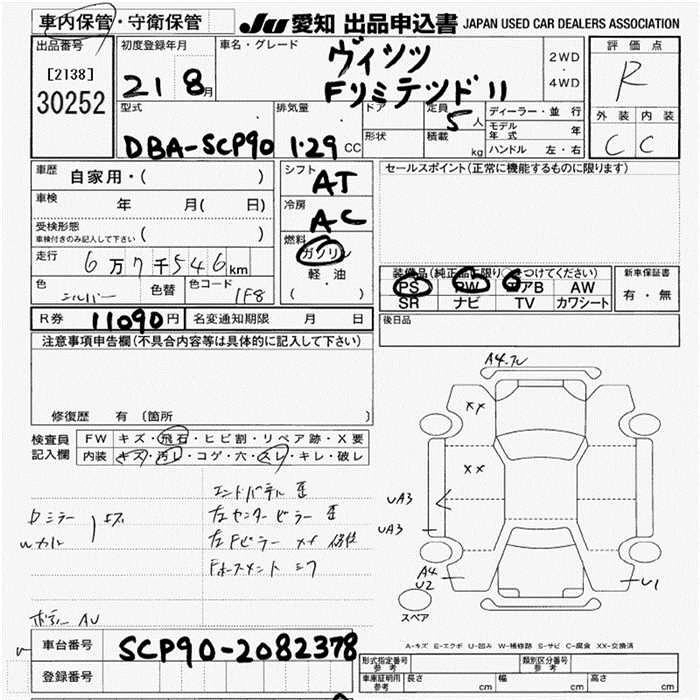 車内保管・守衛保管
JU 愛知 出品申込書 JAPAN USED CAR DEALERS ASSOCIATION
出品番号
[2138]
30252
初度登録年月
21 8月
車名・グレード
ヴィッツ
Fリミテッド II
2WD
・
4WD
評価点
R
外装 内装
C C
型式
DBA-SCP90
排気量
1.29 CC
ドア
形状
定員
5人
積載
kg
ディーラー・並行
モデル年式 年
ハンドル 左・右
車歴
自家用・( )
車検
年 月( 日)
受検形態
車検付きのみ記入して下さい ( )
走行
6万7千546km
色
シルバー
色替
色コード
1F8
シフト
AT
冷房
AC
燃料
ガソリン
軽・油
( )
セールスポイント(正常に機能するものに限ります)
装備品(純正品に限り○をつけてください)
PS PW エアB AW
SR ナビ TV カワシート
新車保証書
有・無
R券 11090円 名変通知期限 月 日
後日品
注意事項申告欄(不具合内容等は具体的に記入して下さい)
修復歴 有 (箇所 )
検査員記入欄
FW キズ・飛石・ヒビ割・リペア跡・X要
内装 キズ・汚レ・コゲ・穴・スレ・キレ・破レ
エンドパネル
左センターピラー
左Fピラー
ミラー
A4
XX
XX
UA3
UA3
A4
U2
U1
スペア
A-キズ E-エクボ U-凹み W-補修跡 S-サビ C-腐食 XX-交換済
車台番号 SCP90-2082378
登録番号
形式指定番号
参考
類別区分番号
参考
車庫証明用
参考
長さ cm 幅 cm 高さ cm